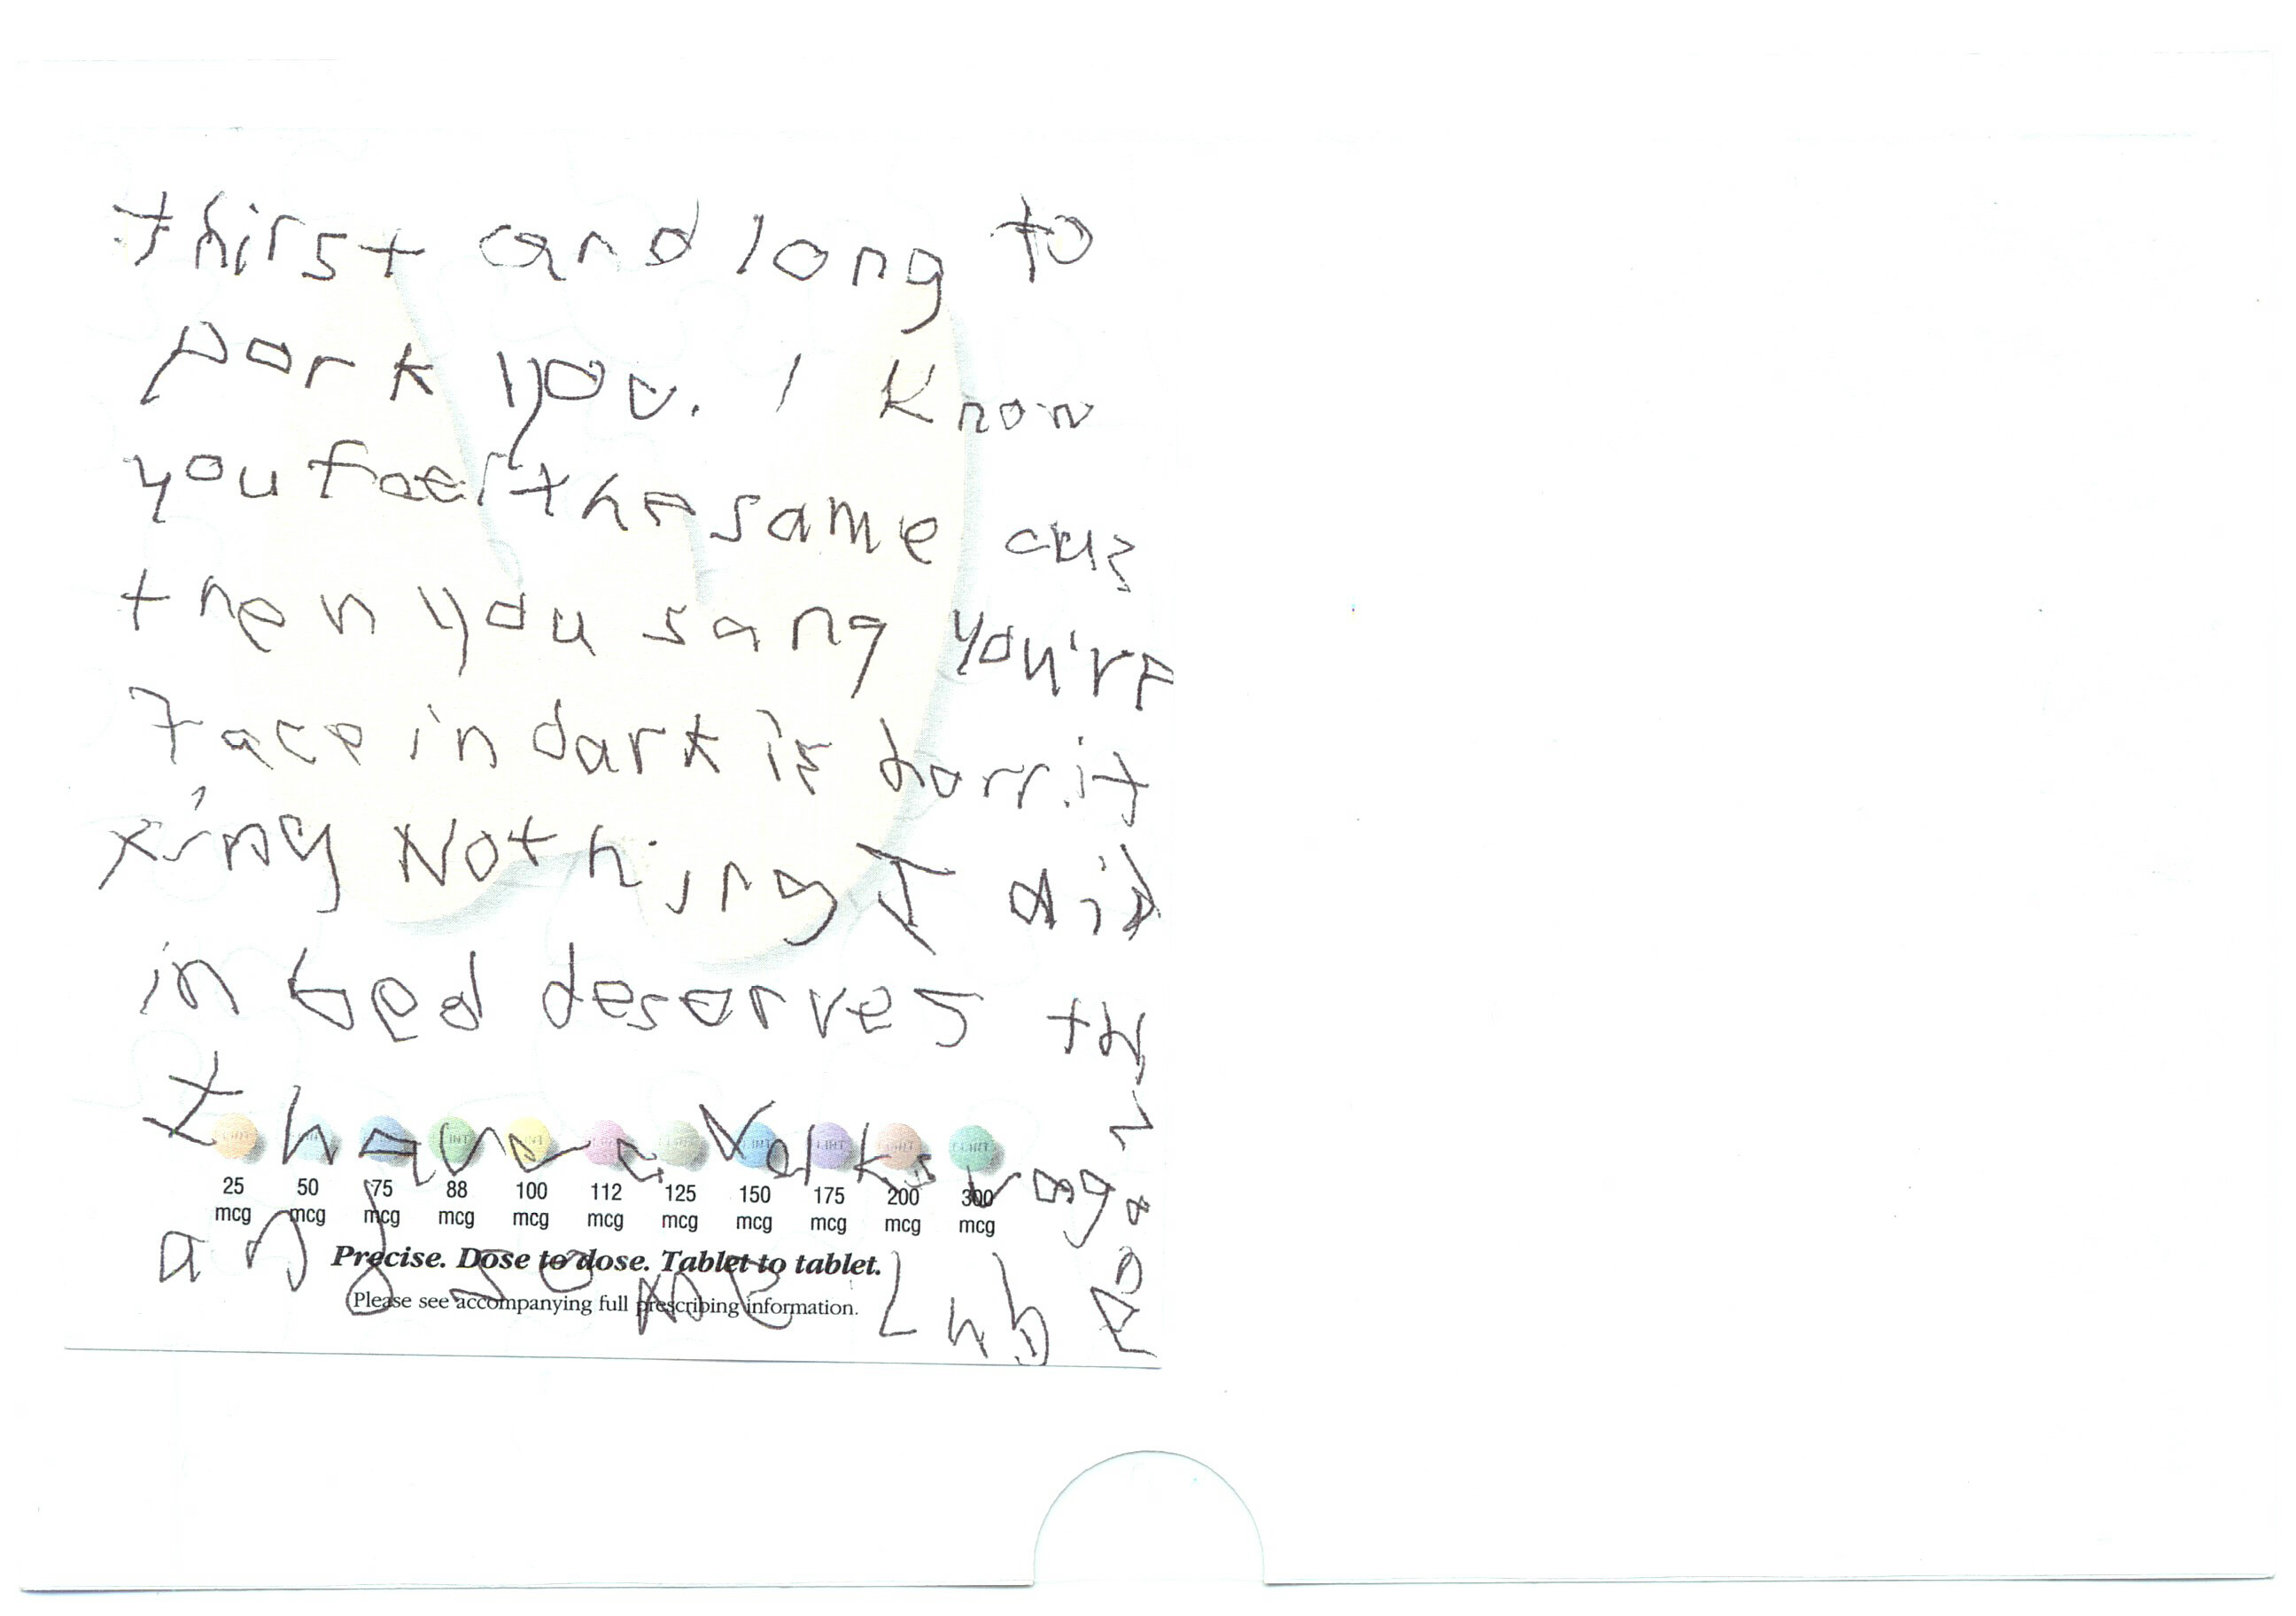 thirst and long to
park you. I know
you feel the same cuz
then you sang you're
face in dark is horrit
x'ing Nothing I did
in bed deserves th
I have a Volks wag
and some Lub
25 mcg 50 mcg 75 mcg 88 mcg 100 mcg 112 mcg 125 mcg 150 mcg 175 mcg 200 mcg 300 mcg
Precise. Dose to dose. Tablet to tablet.
Please see accompanying full prescribing information.